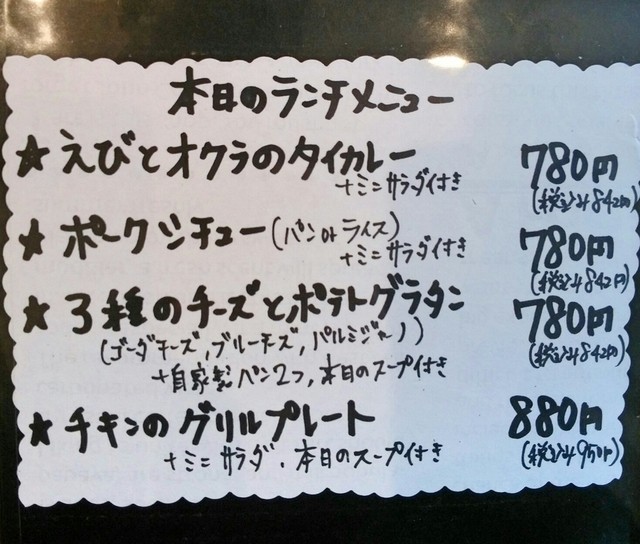 本日のランチメニュー
★えびとオクラのタイカレー 780円
+ミニサラダ付き (税込み842円)
★ポークシチュー(パンorライス) 780円
+ミニサラダ付き (税込み842円)
★3種のチーズとポテトグラタン 780円
(ゴーダチーズ,ブルーチーズ,パルミジャーノ) (税込み842円)
+自家製パン2つ,本日のスープ付き
★チキンのグリルプレート 880円
+ミニサラダ、本日のスープ付き (税込み950円)